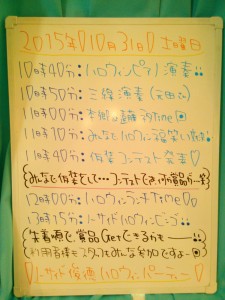 2015年10月31日 土曜日
10時40分:ハロウィンピアノ演奏
10時50分:三線演奏
11時00分:
11時10分:みなでハロウィン福笑い
11時40分:仮装コンテスト発表♡
みんなで仮装をして…コンテストで
12時00分:ハロウィンランチtime♡
13時15分:ノーサイドハロウィンビンゴ
先着順で、賞品Getできるかも
利用者様もスタッフもみんな参加ですよ〜
ノーサイド ハロウィンパーティー♡